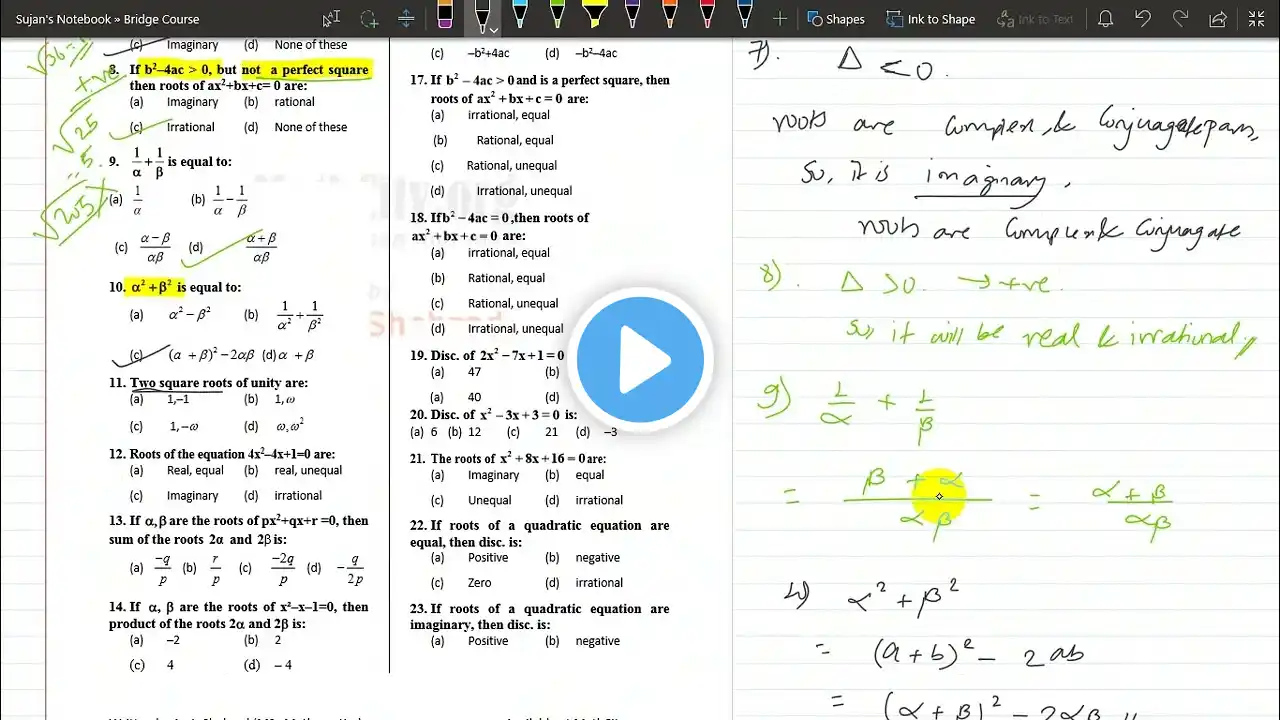 Sujan's Notebook » Bridge Course
Shapes
Ink to Shape
Ink to Text
(c) Imaginary (d) None of these
8. If b²–4ac > 0, but not a perfect square
then roots of ax²+bx+c= 0 are:
(a) Imaginary (b) rational
(c) Irrational (d) None of these
9. 1/α + 1/β is equal to:
(a) 1/α (b) 1/α − 1/β
(c) α − β/αβ (d) α + β/αβ
10. α² + β² is equal to:
(a) α² − β² (b) 1/α² + 1/β²
(c) (a + β)² − 2αβ (d) α + β
11. Two square roots of unity are:
(a) 1,–1 (b) 1, ω
(c) 1, −ω (d) ω, ω²
12. Roots of the equation 4x²–4x+1=0 are:
(a) Real, equal (b) real, unequal
(c) Imaginary (d) irrational
13. If α, β are the roots of px²+qx+r =0, then
sum of the roots 2α and 2β is:
(a) −q/p (b) r/p (c) −2q/p (d) −q/2p
14. If α, β are the roots of x²–x–1=0, then
product of the roots 2α and 2β is:
(a) –2 (b) 2
(c) 4 (d) – 4
√36=
+ve
√25
= 5
√205
(c) –b²+4ac (d) –b²–4ac
17. If b² − 4ac > 0 and is a perfect square, then
roots of ax² + bx + c = 0 are:
(a) irrational, equal
(b) Rational, equal
(c) Rational, unequal
(d) Irrational, unequal
18. If b² − 4ac = 0, then roots of
ax² + bx + c = 0 are:
(a) irrational, equal
(b) Rational, equal
(c) Rational, unequal
(d) Irrational, unequal
19. Disc. of 2x² − 7x + 1 = 0
(a) 47 (b)
(a) 40 (d)
20. Disc. of x² − 3x + 3 = 0 is:
(a) 6 (b) 12 (c) 21 (d) –3
21. The roots of x² + 8x + 16 = 0 are:
(a) Imaginary (b) equal
(c) Unequal (d) irrational
22. If roots of a quadratic equation are
equal, then disc. is:
(a) Positive (b) negative
(c) Zero (d) irrational
23. If roots of a quadratic equation are
imaginary, then disc. is:
(a) Positive (b) negative
7). Δ < 0.
roots are complex & conjugate pairs,
So, it is imaginary.
roots are complex & conjugate
8). Δ > 0. → +ve.
so it will be real & irrational,
9) 1/α + 1/β
= β + α/αβ = α + β/αβ
α² + β²
= (a + b)² − 2ab
= (α + β)² − 2αβ